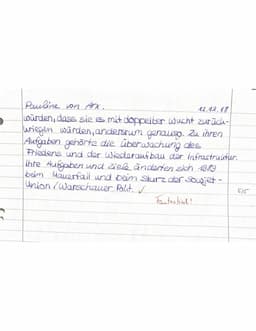 Pauline von Arx. 12.12.18
würden, dass sie es mit doppelter Wucht zurück-
kriegen würden, andersrum genauso. Zu ihren
Aufgaben gehörte die Überwachung des
Friedens und der Wiederaufbau der Infrastruktur.
Ihre Aufgaben und Ziele änderten sich 1989
beim Mauerfall und beim Sturz der Sowjet-
Union / Warschauer Pakt. ✓ 5/5
Fantastisch!